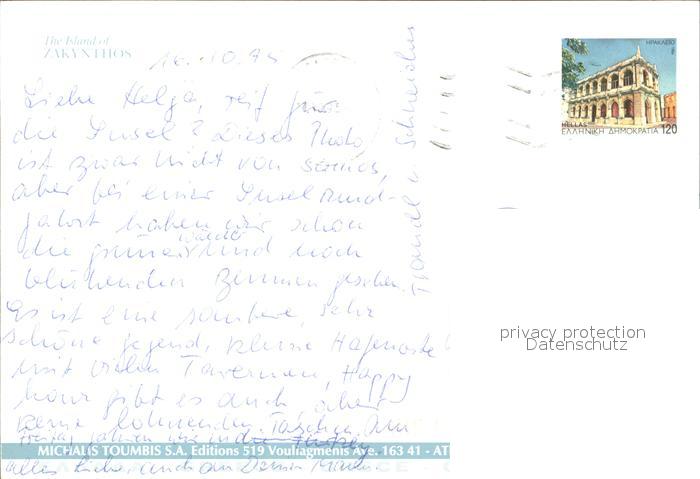 The Island of
ZAKYNTHOS
16.10.95
Liebe Helga, reif für
die Insel? Dieses Photo
ist zwar nicht von Samos,
aber bei einer Inselrund-
fahrt haben wir schon
die grünen Wälder und noch
blühenden Blumen gesehen.
Es ist eine saubere, sehr
schöne Gegend, kleine Hafenorte
mit vielen Tavernen, Happy
hour gibt es auch, aber
keine lohnenden Taschen. Am
Freitag fahren wir in die Türkei.
alles Liebe auch an Deinen Mann.
MICHALIS TOUMBIS S.A. Editions 519 Vouliagmenis Ave. 163 41 - AT
ΗΡΑΚΛΕΙΟ
HELLAS
ΕΛΛΗΝΙΚΗ ΔΗΜΟΚΡΑΤΙΑ 120
privacy protection
Datenschutz